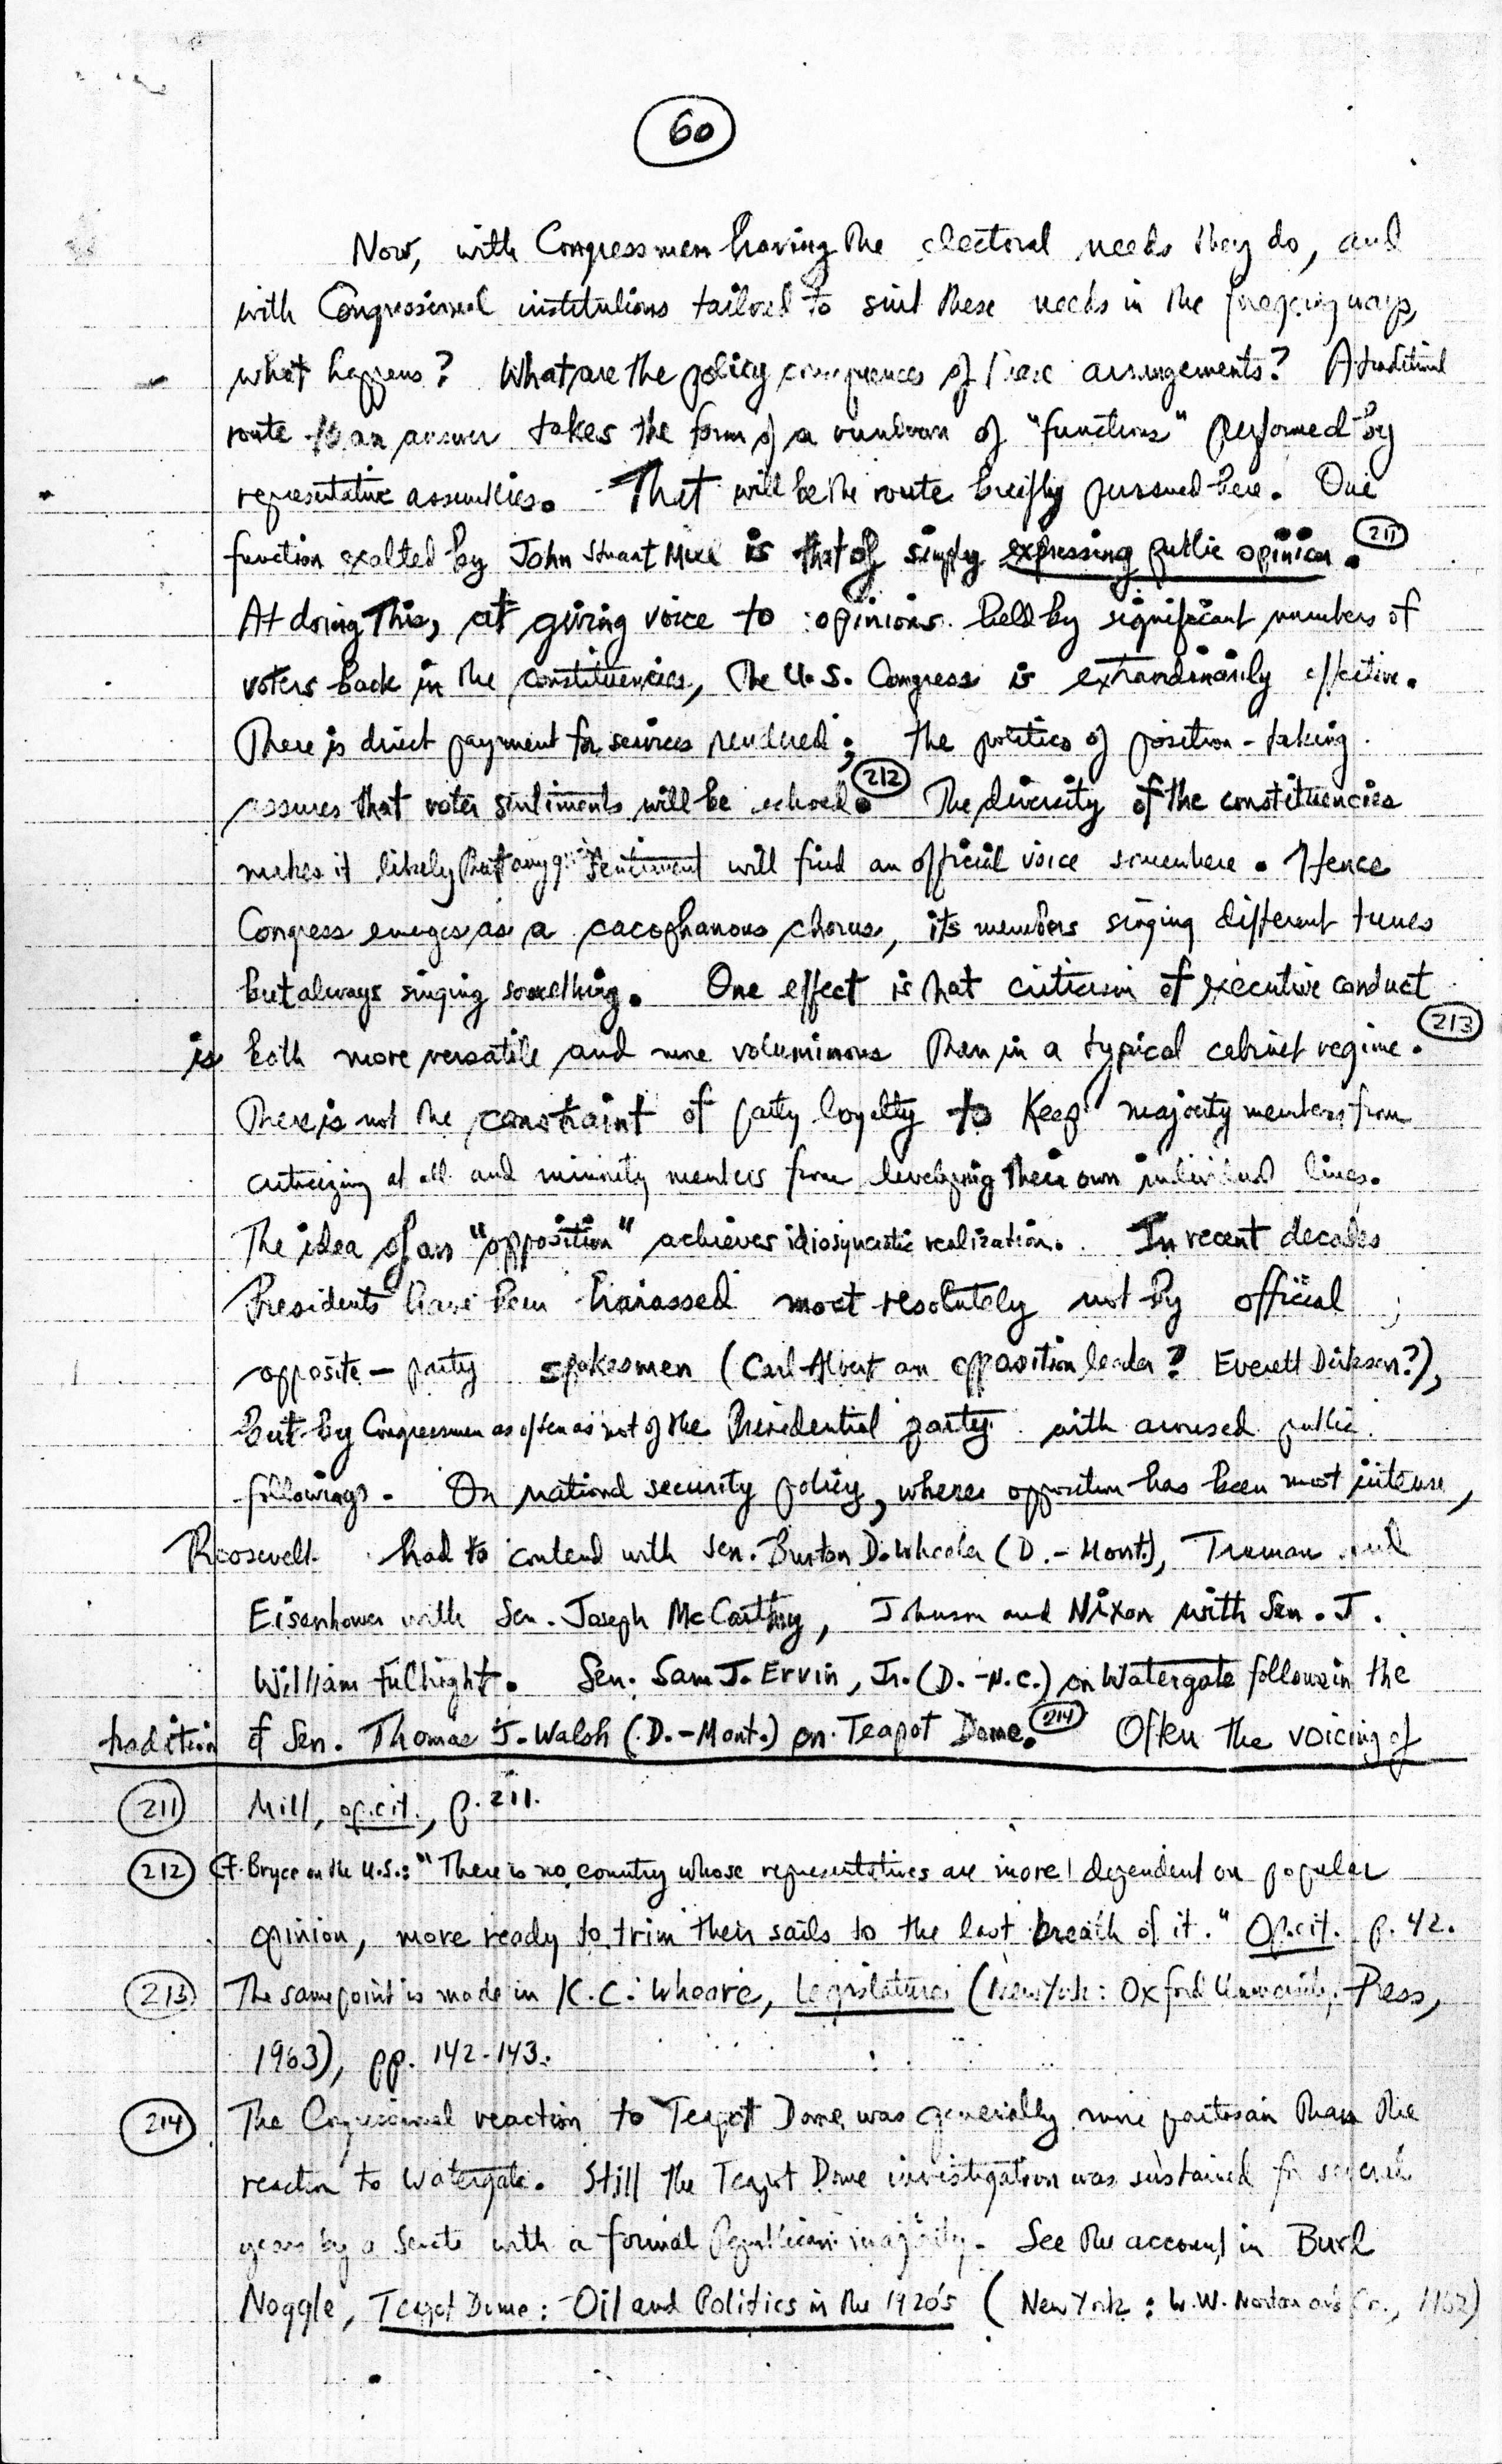 60
Now, with Congressmen having the electoral needs they do, and
with Congressional institutions tailored to suit these needs in the foregoing ways,
what happens? What are the policy consequences of these arrangements? A traditional
route to an answer takes the form of a rundown of "functions" performed by
representative assemblies. That will be the route briefly pursued here. One
function exalted by John Stuart Mill is that of simply expressing public opinion. 211
At doing this, at giving voice to opinions held by significant numbers of
voters back in the constituencies, the U.S. Congress is extraordinarily effective.
There is direct payment for services rendered; the politics of position-taking
assures that voter sentiments will be echoed. 212 The diversity of the constituencies
makes it likely that any given sentiment will find an official voice somewhere. Hence
Congress emerges as a cacophanous chorus, its members singing different tunes
but always singing something. One effect is that criticism of executive conduct
is both more versatile and more voluminous than in a typical cabinet regime. 213
There is not the constraint of party loyalty to keep majority members from
criticizing at all and minority members from developing their own individual lines.
The idea of an "opposition" achieves idiosyncratic realization. In recent decades
Presidents have been harassed most resolutely not by official
opposite-party spokesmen (Carl Albert an opposition leader? Everett Dirksen?),
but by Congressmen as often as not of the Presidential party with aroused public
followings. On national security policy, where opposition has been most intense,
Roosevelt had to contend with Sen. Burton D. Wheeler (D.-Mont.), Truman and
Eisenhower with Sen. Joseph McCarthy, Johnson and Nixon with Sen. J.
William Fulbright. Sen. Sam J. Ervin, Jr. (D.-N.C.) on Watergate follows in the
tradition of Sen. Thomas J. Walsh (D.-Mont.) on Teapot Dome. 214 Often the voicing of
211 Mill, op. cit., p. 211.
212 Cf. Bryce on the U.S.: "There is no country whose representatives are more dependent on popular
opinion, more ready to trim their sails to the last breath of it." Op. cit. p. 42.
213 The same point is made in K.C. Wheare, Legislatures (New York: Oxford University Press,
1963), pp. 142-143.
214 The Congressional reaction to Teapot Dome was generally more partisan than the
reaction to Watergate. Still the Teapot Dome investigation was sustained for several
years by a Senate with a formal Republican majority. See the account in Burl
Noggle, Teapot Dome: Oil and Politics in the 1920's (New York: W.W. Norton and Co., 1962)